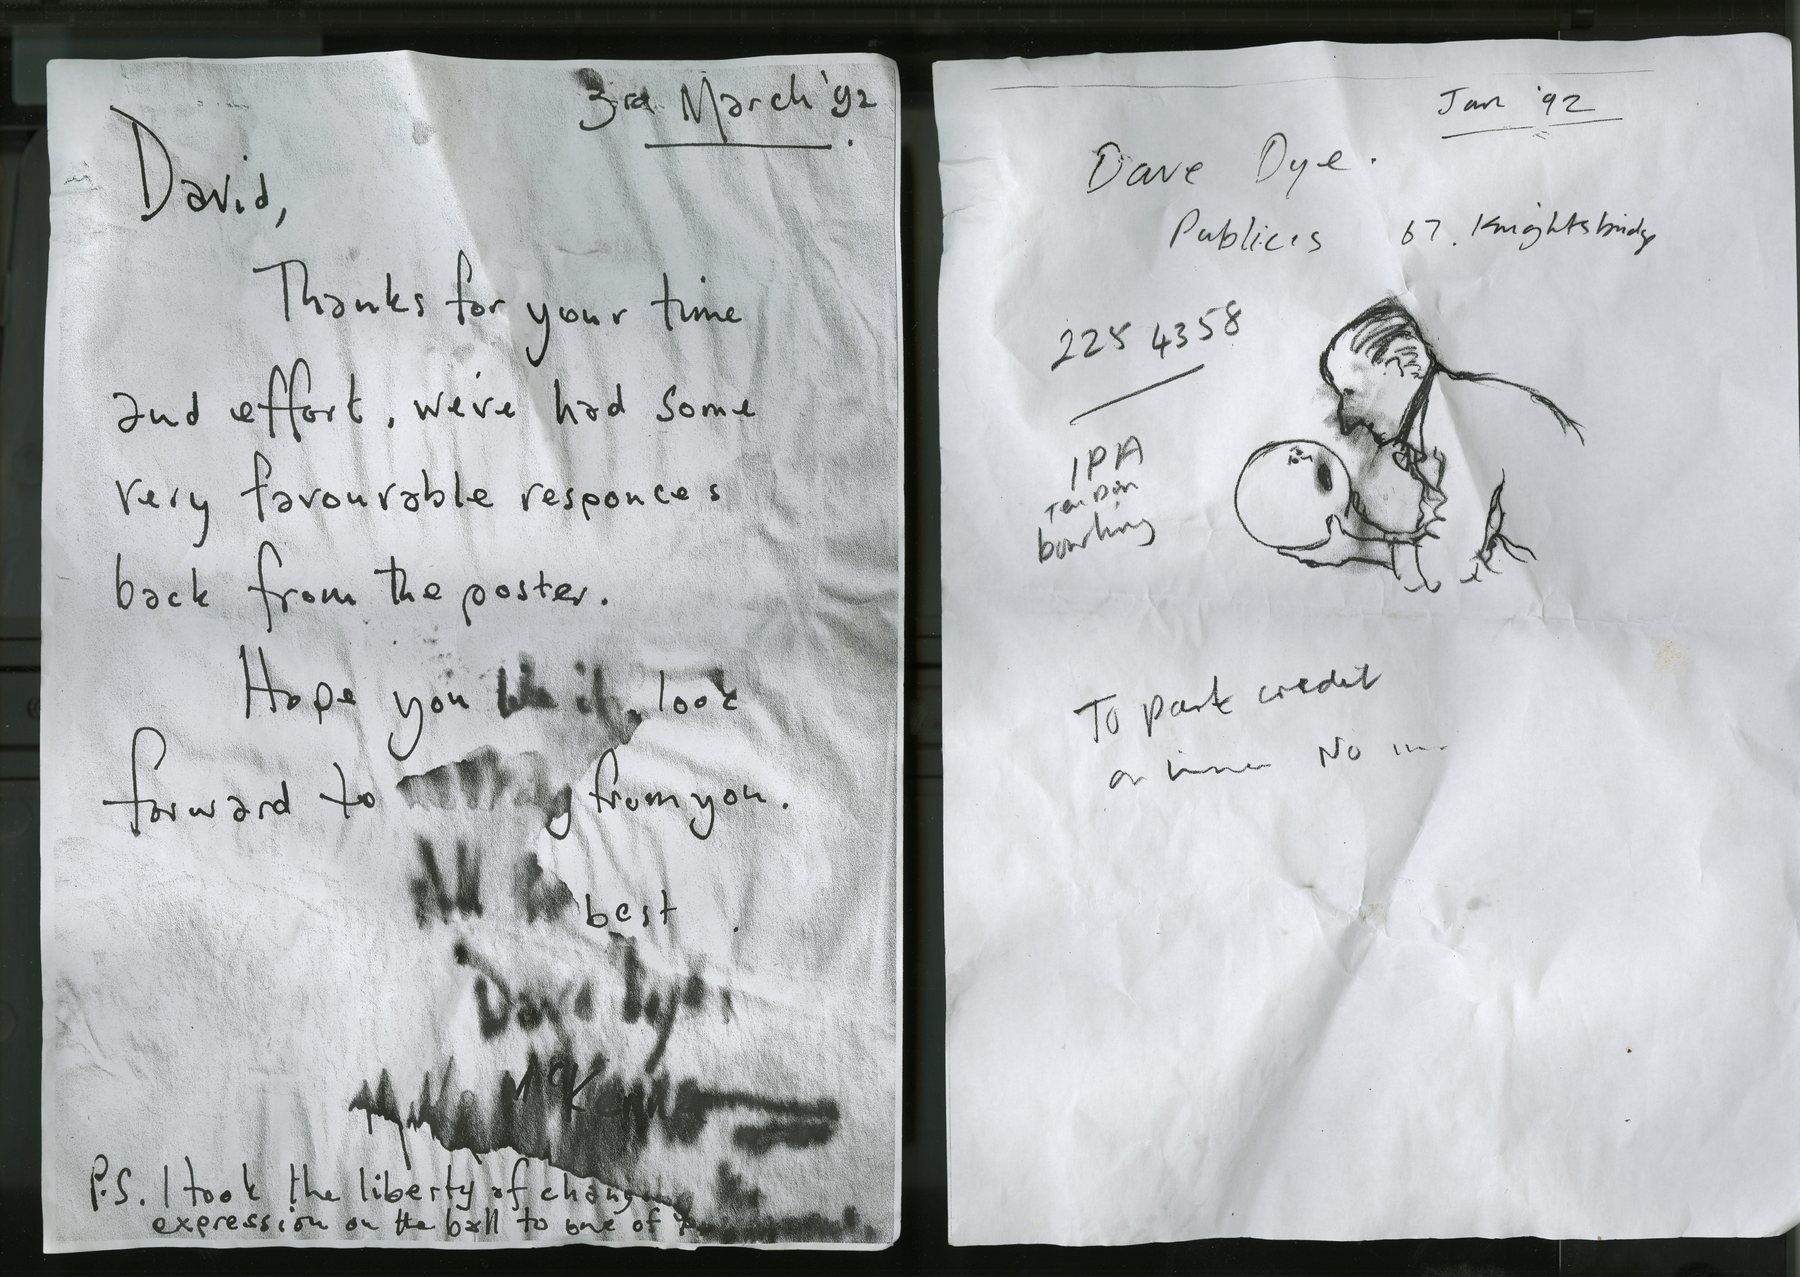 3rd March '92
David,
Thanks for your time
and effort, we've had some
very favourable responces
back from the poster.
Hope you like it, look
forward to from you.
All the best
Dave Dye.
McKenna
P.S. I took the liberty of changing
expression on the ball to one of
Jan '92
Dave Dye.
Publicis 67. Knightsbridge
225 4358
IPA
Ten Pin
bowling
To part credit
No